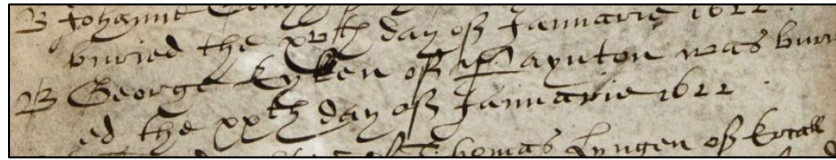 B Johanne
buried the xvth day of Januarie 1622
B George Eyken of Paynton was buri
ed the xxth day of Januarie 1622
Thomas Lyngen of